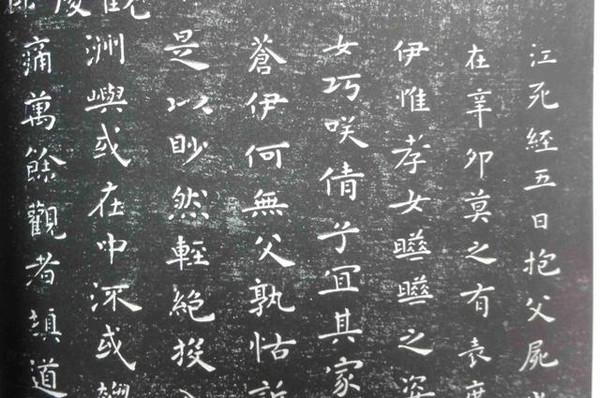 江死經五日抱父屍
在辛卯莫之有表度
伊惟孝女曒曒之姿
女巧咲倩兮冝其家
蒼伊何無父孰怙訴
是以眇然輕絕投入
觀洲嶼或在中流或趨
痛萬餘觀者填道